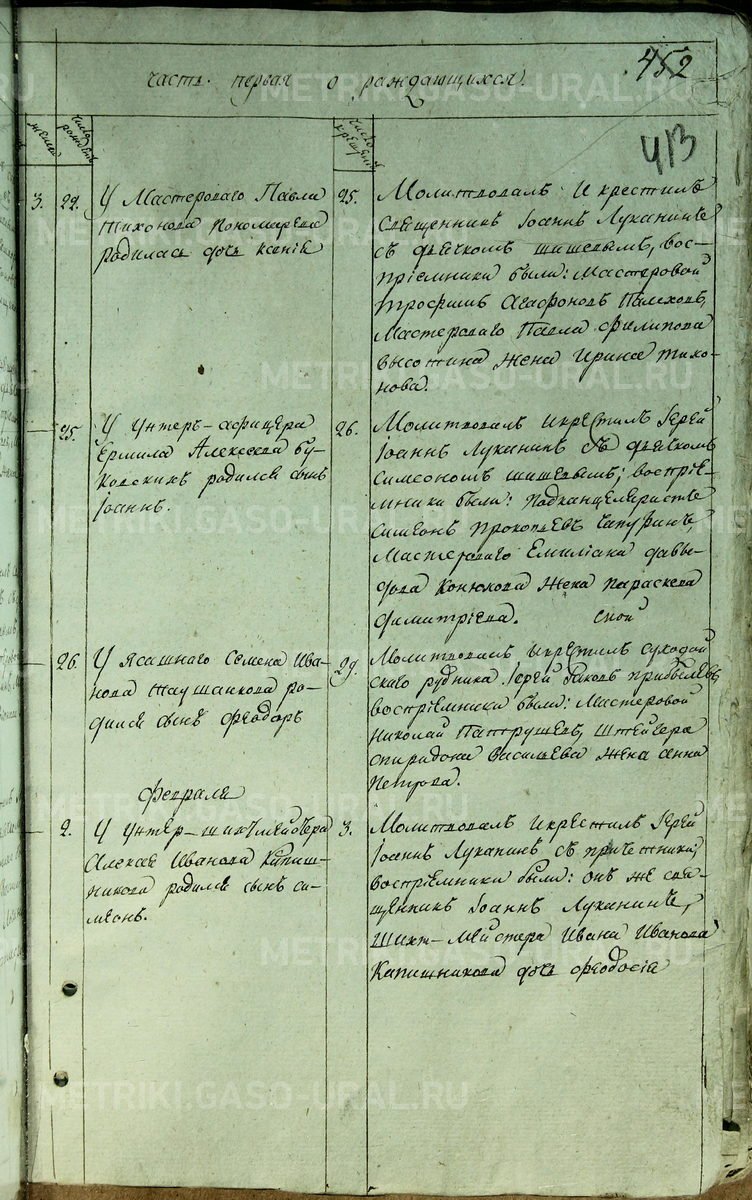 452
часть первая о раждающихся.
413
женск
число рожденія
число крещенія
3. 22. У Мастероваго Павла
Тихонова Пономарева
родилась дочь Ксенія
25. Молитвовалъ и крестилъ
Священникъ Іоаннъ Луканинъ
съ дьячкомъ Шишевымъ, вос-
пріемники были: Мастеровой
Трофимъ Агафоновъ Палеховъ,
Мастероваго Павла Филипова
Высотина жена Ирина Тихо-
нова.
25. У Унтеръ-афицера
Ермила Алексеева Бу-
родился сынъ
Іоаннъ.
26. Молитвовалъ и крестилъ Іерей
Іоаннъ Луканинъ съ дьячкомъ
Симеономъ Шишевымъ; воспріе-
мники были: Подканцеляристъ
Симеонъ Прокопьевъ Чапуринъ,
Мастероваго Емиліана Давы-
дова Конюхова жена Параскева
Димитріева.
26. У Ясашнаго Семена Ива-
нова ро-
дился сынъ Феодоръ
29. Молитвовалъ и крестилъ Суходой
ской
скаго рудника Іерей Іаковъ Прибылевъ,
воспріемники были: Мастеровой
Николай Патрушевъ, Штейгера
Спиридона Васильева жена Анна
Петрова.
Февраля
2. У Унтер-шихтмейстера
Алексея Иванова Капиш-
никова родился сынъ Си-
меонъ.
3. Молитвовалъ и крестилъ Іерей
Іоаннъ Луканинъ съ причетники;
воспріемники были: онъ же свя-
щенникъ Іоаннъ Луканинъ,
Шихт-мейстера Ивана Иванова
Капишникова дочь Феодосія
METRIKI.GASO-URAL.RU